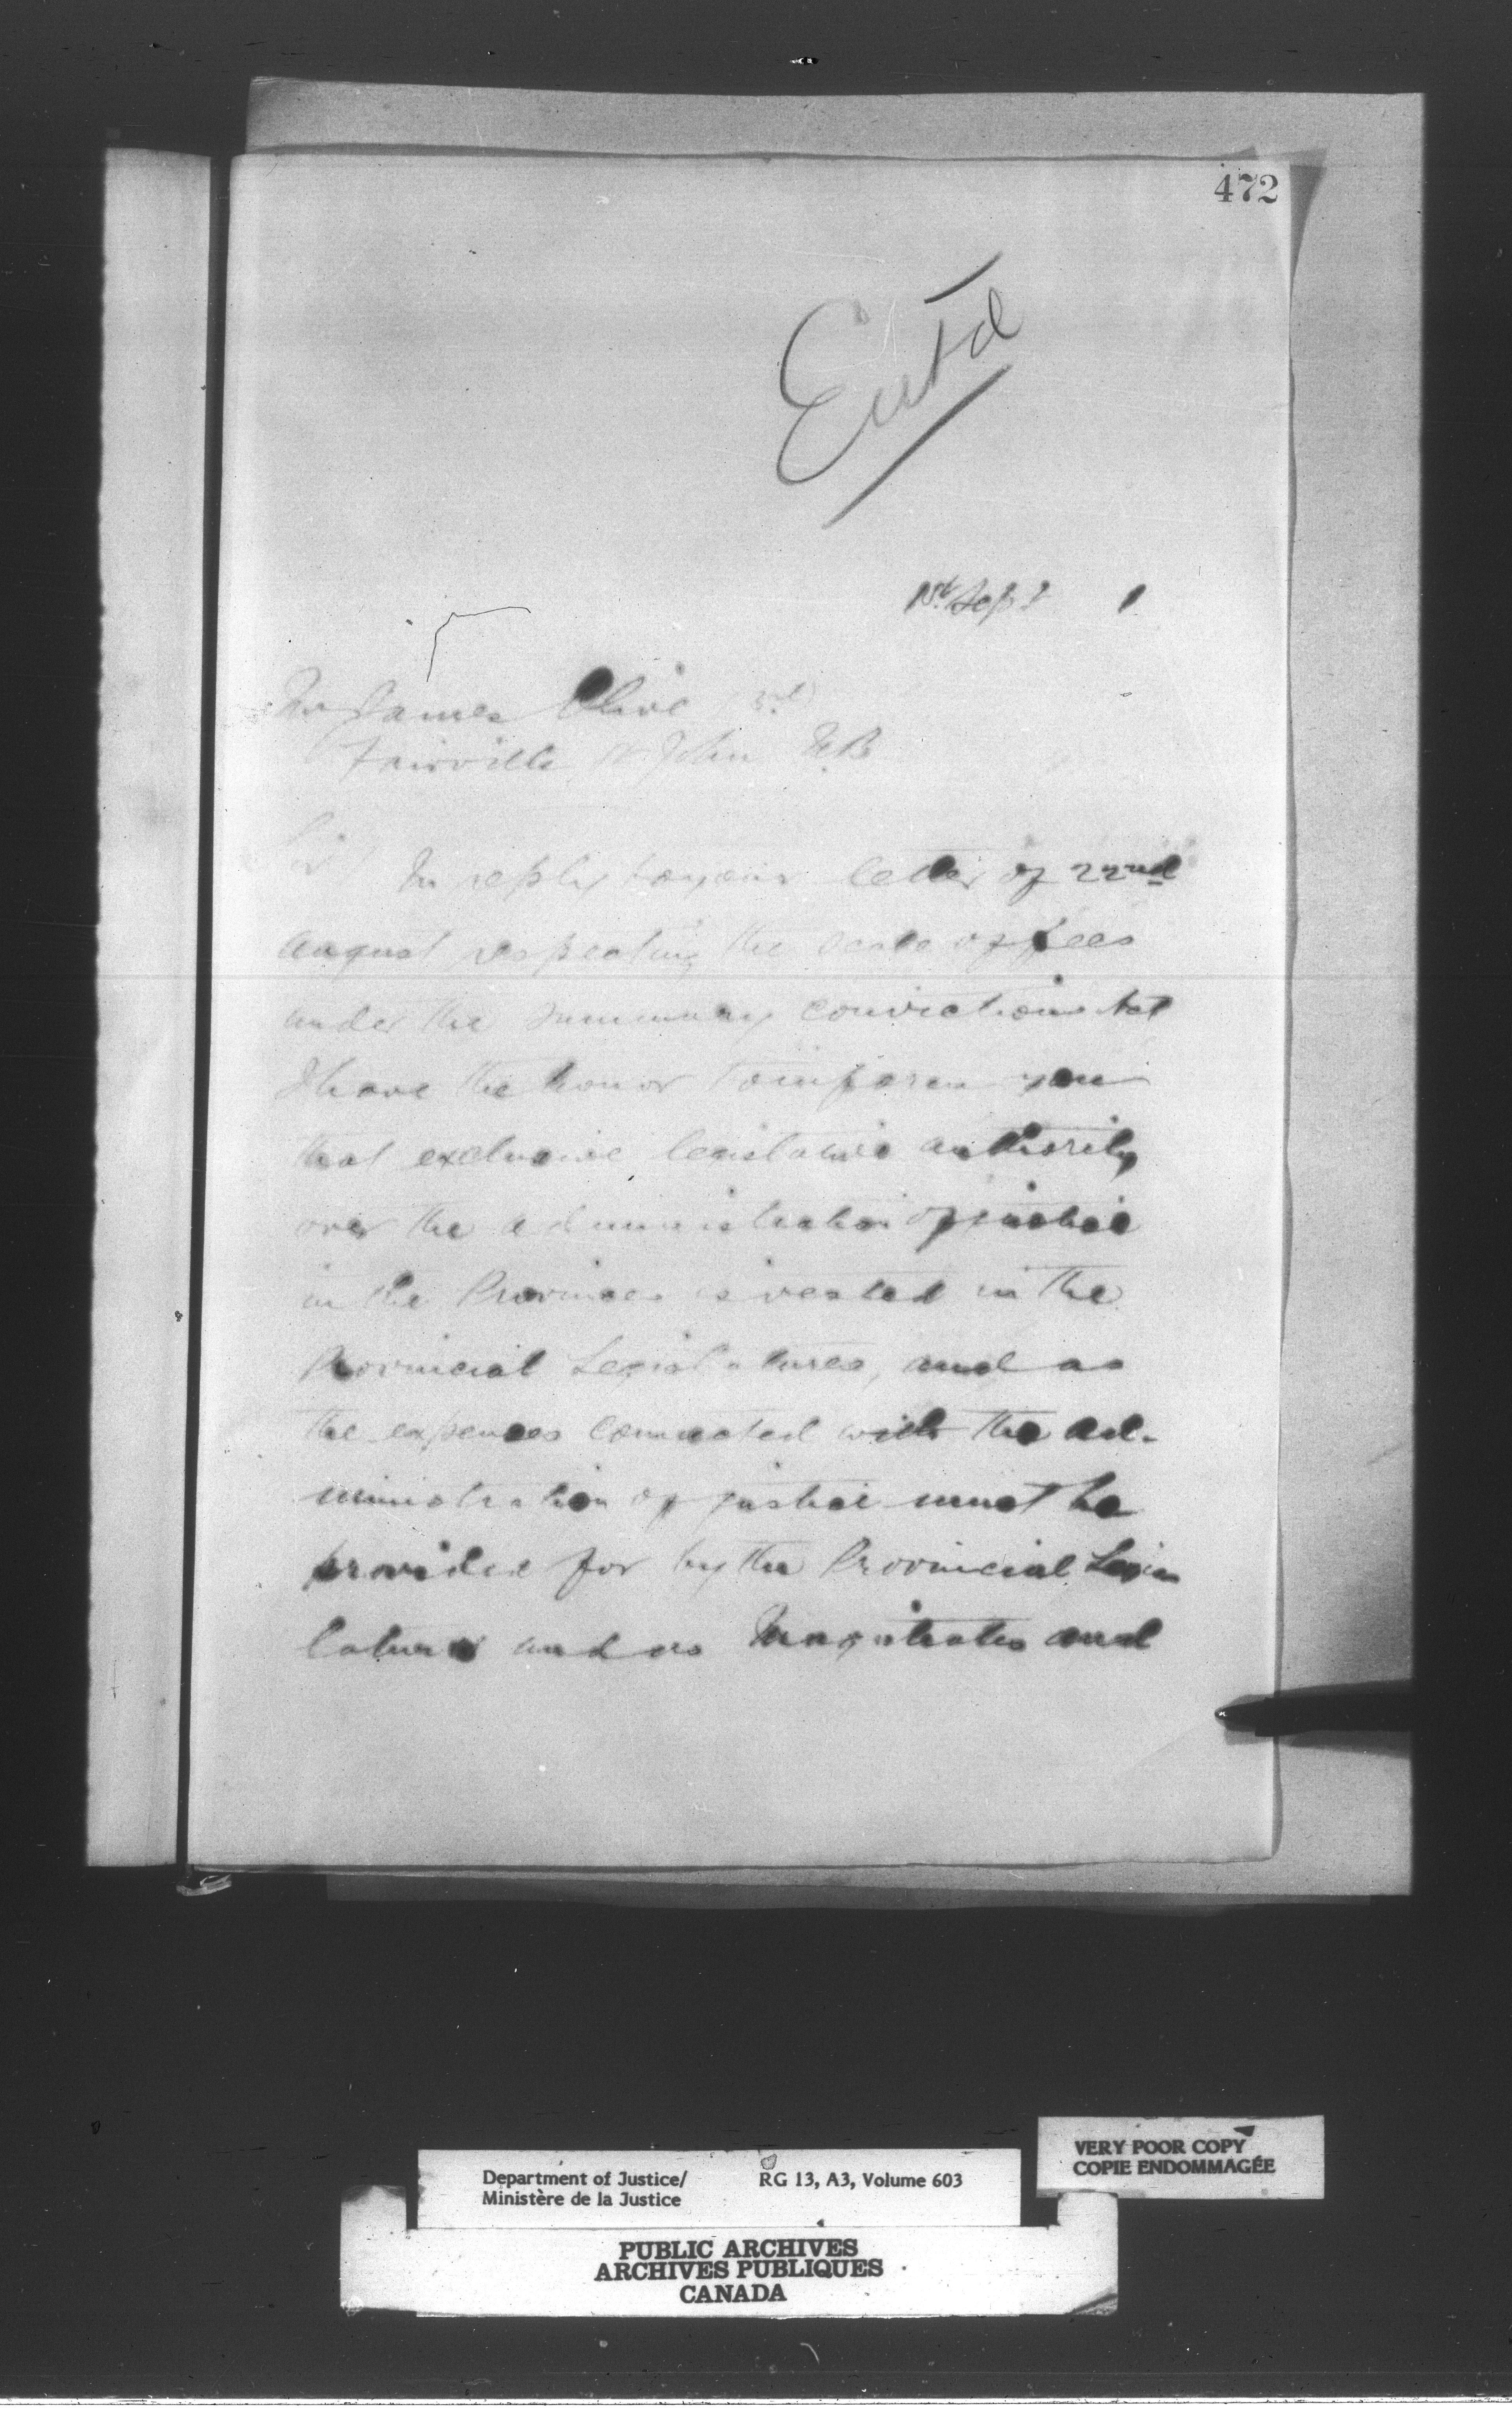 472
Entd
1st Sept 1
Mr James Olive (3rd)
Fairville St John N.B
Sir
In reply to your letter of 22nd
August respecting the scale of fees
under the Summary Convictions Act
I have the honor to inform you
that exclusive legislative authority
over the administration of justice
in the Provinces is vested in the
Provincial Legislatures, and as
the expenses connected with the ad-
ministration of justice must be
provided for by the Provincial Legis
latures and as Magistrates and
Department of Justice/ RG 13, A3, Volume 603
Ministère de la Justice
VERY POOR COPY
COPIE ENDOMMAGÉE
PUBLIC ARCHIVES
ARCHIVES PUBLIQUES
CANADA